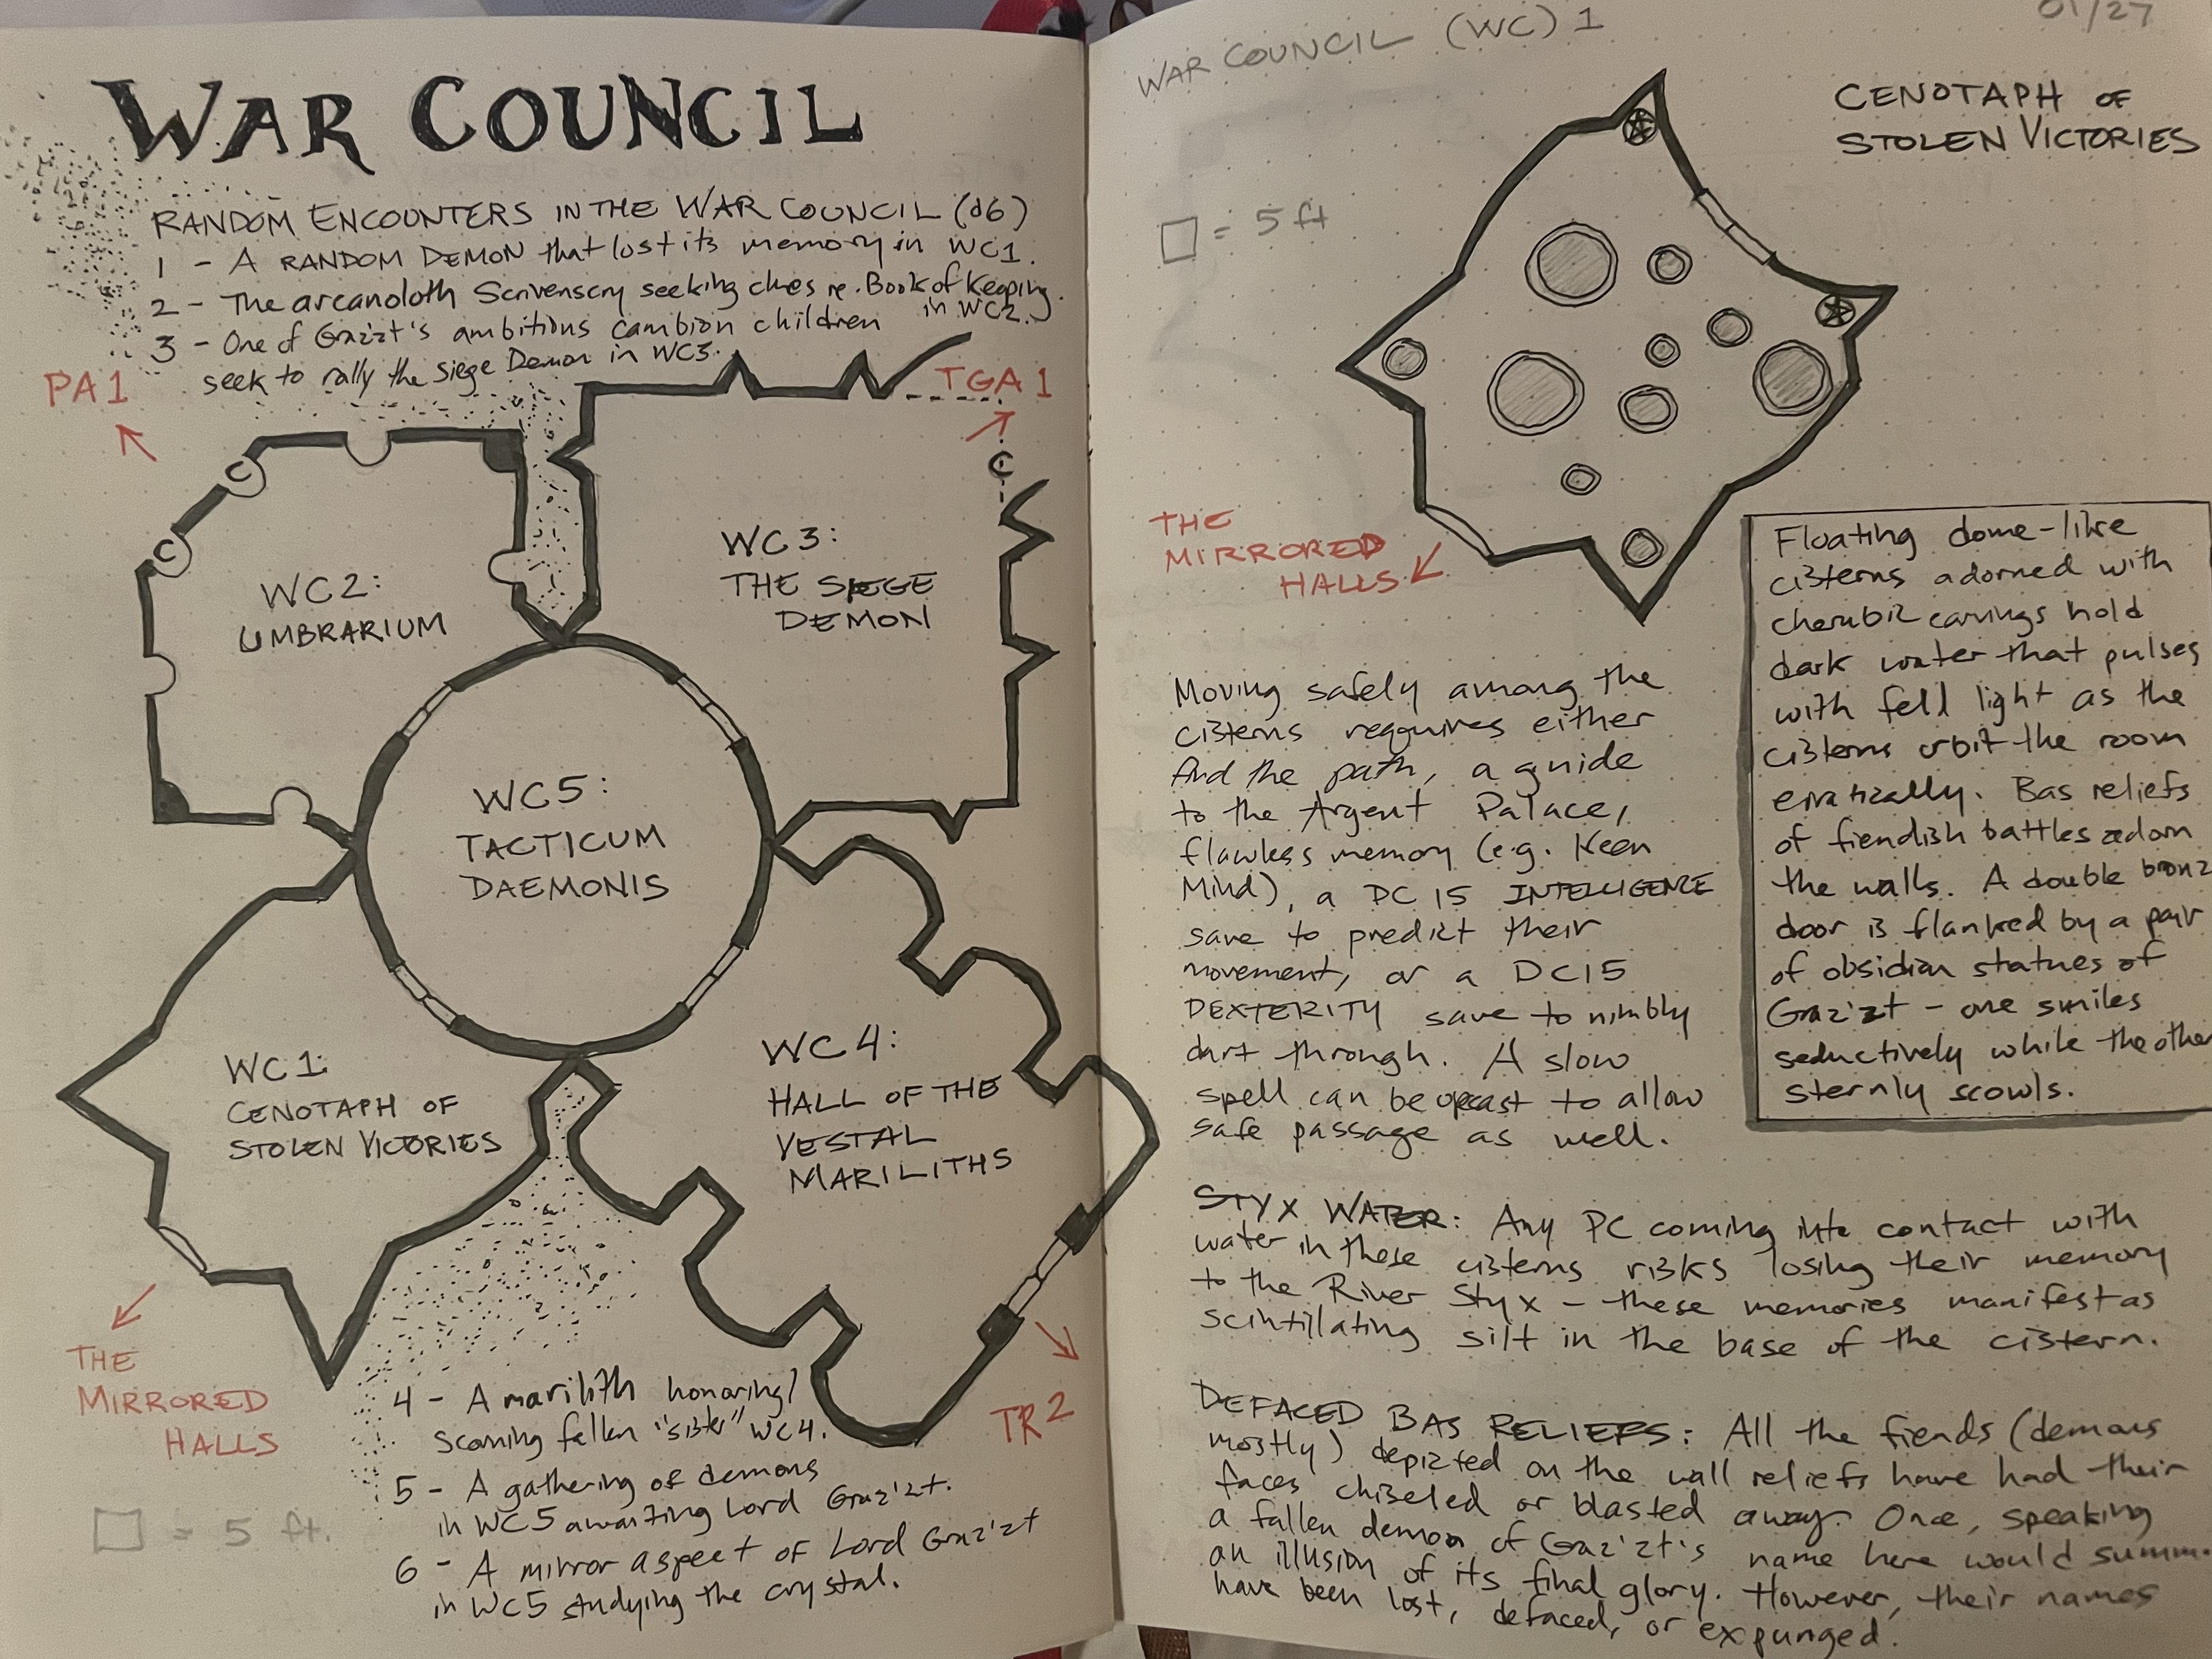 WAR COUNCIL
RANDOM ENCOUNTERS IN THE WAR COUNCIL (d6)
1 - A RANDOM DEMON that lost its memory in WC1.
2 - The arcanoloth Scrivenscry seeking clues re. Book of Keeping
in WC2.
3 - One of Graz'zt's ambitious cambion children
seek to rally the Siege Demon in WC3.
PA1
TGA1
C
C
C
WC2:
UMBRARIUM
WC3:
THE SIEGE
DEMON
WC5:
TACTICUM
DAEMONIS
WC1:
CENOTAPH OF
STOLEN VICTORIES
WC4:
HALL OF THE
VESTAL
MARILITHS
THE
MIRRORED
HALLS
TR2
4 - A marilith honoring/
scorning fallen "sister" WC4.
5 - A gathering of demons
in WC5 awaiting Lord Graz'zt.
6 - A mirror aspect of Lord Graz'zt
in WC5 studying the crystal.
= 5 ft.
WAR COUNCIL (WC) 1
01/27
CENOTAPH OF
STOLEN VICTORIES
= 5 ft
THE
MIRRORED
HALLS
Moving safely among the
cisterns requires either
find the path, a guide
to the Argent Palace,
flawless memory (e.g. Keen
Mind), a DC 15 INTELLIGENCE
save to predict their
movement, or a DC15
DEXTERITY save to nimbly
dart through. A slow
spell can be upcast to allow
safe passage as well.
Floating dome-like
cisterns adorned with
cherubic carvings hold
dark water that pulses
with fell light as the
cisterns orbit the room
erratically. Bas reliefs
of fiendish battles adorn
the walls. A double bronz
door is flanked by a pair
of obsidian statues of
Graz'zt - one smiles
seductively while the other
sternly scowls.
STYX WATER: Any PC coming into contact with
water in these cisterns risks losing their memory
to the River Styx - these memories manifest as
scintillating silt in the base of the cistern.
DEFACED BAS RELIEFS: All the fiends (demons
mostly) depicted on the wall reliefs have had their
faces chiseled or blasted away. Once, speaking
a fallen demon of Graz'zt's name here would summ
an illusion of its final glory. However, their names
have been lost, defaced, or expunged.